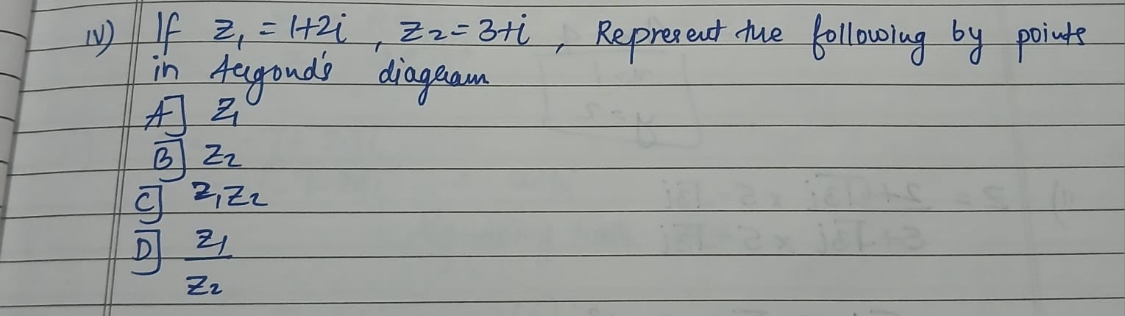 IV) If z₁ = 1+2i , z₂ = 3+i , Represent the following by points
in Argond's diagram
A] z₁
B] z₂
C] z₁z₂
D] z₁
z₂